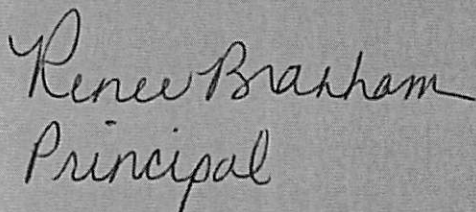 Renee Branham
Principal